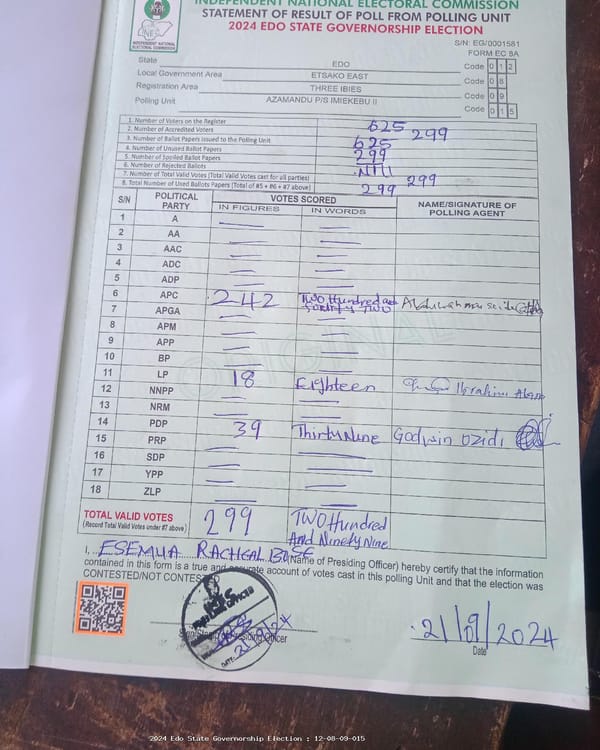 INDEPENDENT NATIONAL ELECTORAL COMMISSION
STATEMENT OF RESULT OF POLL FROM POLLING UNIT
2024 EDO STATE GOVERNORSHIP ELECTION
INDEPENDENT NATIONAL ELECTORAL COMMISSION
S/N: EG/0001581
FORM EC 8A
State EDO Code 0 1 2
Local Government Area ETSAKO EAST Code 0 8
Registration Area THREE IBIES Code 0 9
Polling Unit AZAMANDU P/S IMIEKEBU II Code 0 1 5
1. Number of Voters on the Register 625
2. Number of Accredited Voters 299
3. Number of Ballot Papers Issued to the Polling Unit 625
4. Number of Unused Ballot Papers 299
5. Number of Spoiled Ballot Papers
6. Number of Rejected Ballots
7. Number of Total Valid Votes (Total Valid Votes cast for all parties) 299
8. Total Number of Used Ballots Papers (Total of #5 + #6 + #7 above) 299
S/N POLITICAL PARTY VOTES SCORED NAME/SIGNATURE OF POLLING AGENT
IN FIGURES IN WORDS
1 A
2 AA
3 AAC
4 ADC
5 ADP
6 APC 242 Two Hundred and forty Two
7 APGA
8 APM
9 APP
10 BP
11 LP 18 Eighteen Ibrahim
12 NNPP
13 NRM
14 PDP 39 Thirty Nine Godwin Ozidi
15 PRP
16 SDP
17 YPP
18 ZLP
TOTAL VALID VOTES 299 Two Hundred
(Record Total Valid Votes under #7 above) And Ninety Nine
ORIGINAL
I, ESEMUA RACHEAL BOSE (Name of Presiding Officer) hereby certify that the information
contained in this form is a true and accurate account of votes cast in this polling Unit and that the election was
CONTESTED/NOT CONTESTED
Presiding Officer
21/09/2024
Date
2024 Edo State Governorship Election : 12-08-09-015